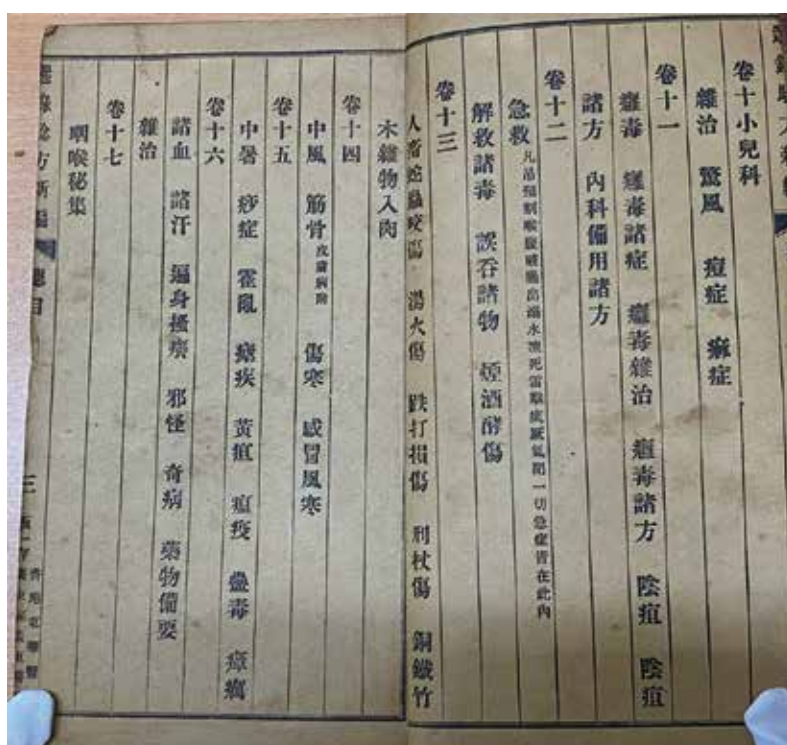 卷十小兒科
雜治 驚風 痘症 痲症
卷十一
癰毒 癰毒諸症 癰毒雜治 癰毒諸方 陰疽 陰疽
諸方 內科備用諸方
卷十二
急救 一切急症皆在此內
解救諸毒 誤吞諸物 煙酒醉傷
卷十三
人畜蛇蟲咬傷 湯火傷 跌打損傷 刑杖傷 銅鐵竹
木雜物入肉
卷十四
中風 筋骨 皮膚病附 傷寒 感冒風寒
卷十五
中暑 痧症 霍亂 瘧疾 黃疸 瘟疫 蠱毒 瘴癘
卷十六
諸血 諸汗 遍身搔癢 邪怪 奇病 藥物備要
雜治
卷十七
咽喉秘集
方新編 總目 三